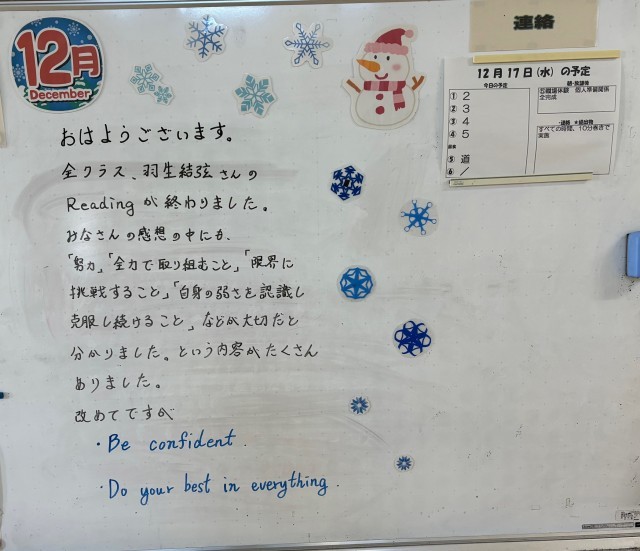 12月
December
連絡
12月17日(水) の予定
今日の予定
① 2
② 3
③ 4
④ 5
⑤ 道
⑥ /
全完成
すべての時間、10分巻きで
実施
おはようございます。
全クラス、羽生結弦さんの
Readingが終わりました。
みなさんの感想の中にも、
「努力」「全力で取り組むこと」「限界に
挑戦すること」「自身の弱さを認識し
克服し続けること」などが大切だと
分かりました。という内容がたくさん
ありました。
改めてですが
・Be confident.
・Do your best in everything.